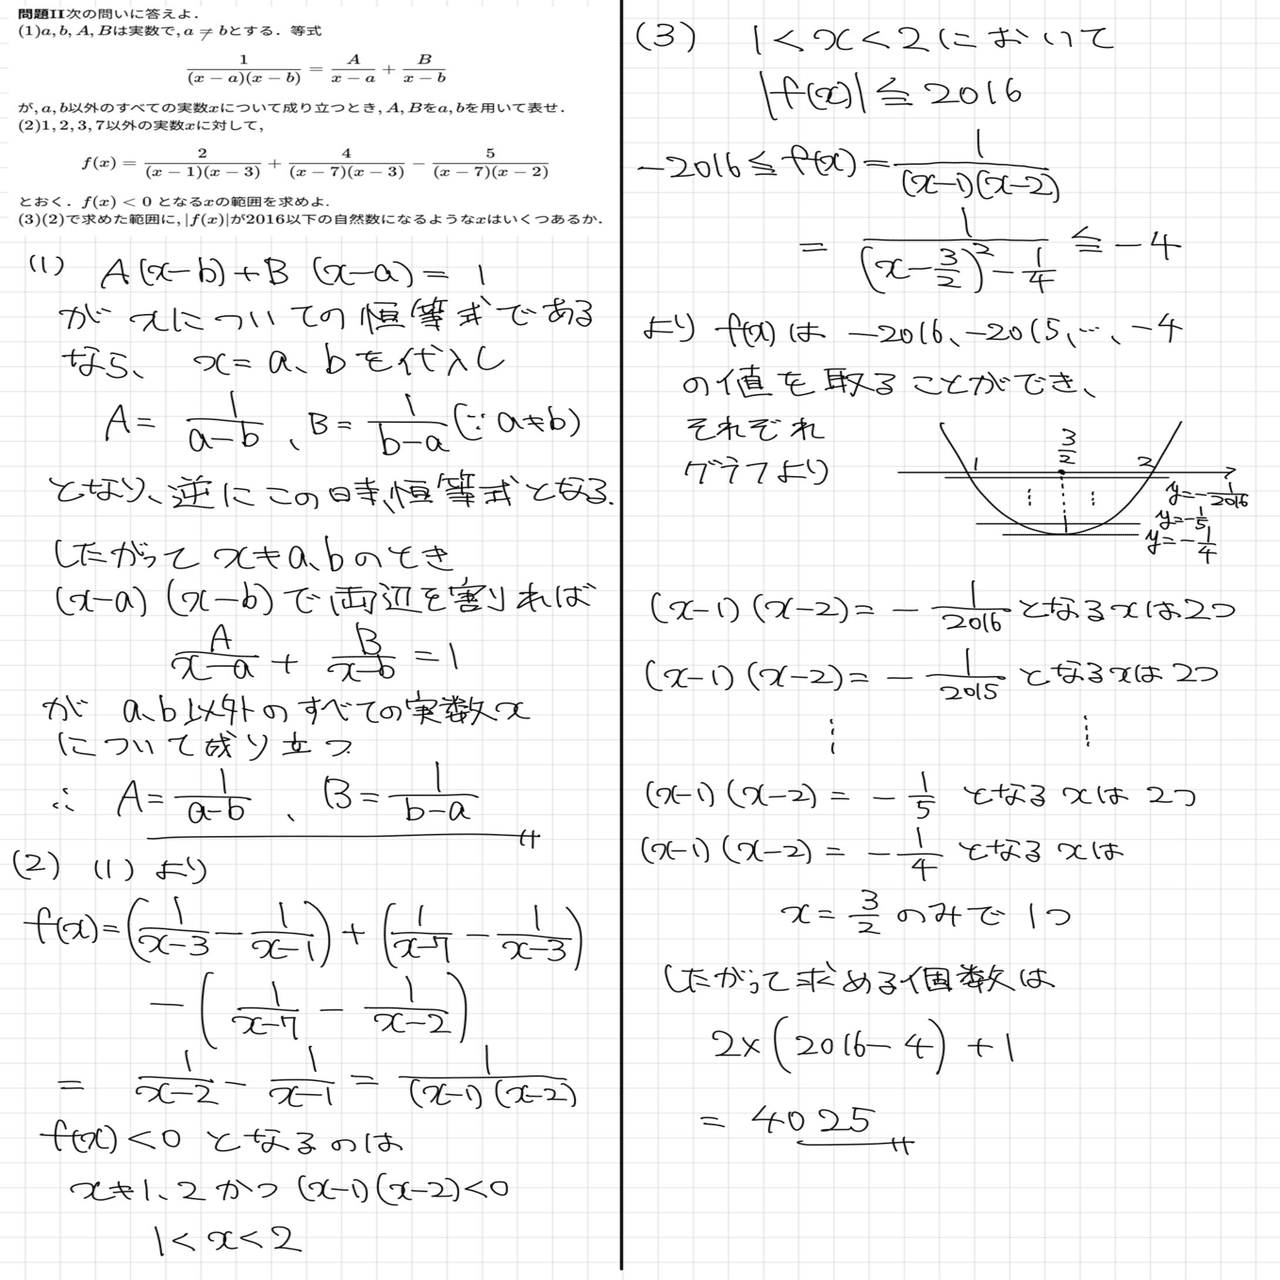 問題II次の問いに答えよ.
(1)a, b, A, Bは実数で, a ≠ bとする. 等式
1/((x − a)(x − b)) = A/(x − a) + B/(x − b)
が, a, b以外のすべての実数xについて成り立つとき, A, Bをa, bを用いて表せ.
(2)1, 2, 3, 7以外の実数xに対して,
f(x) = 2/((x − 1)(x − 3)) + 4/((x − 7)(x − 3)) − 5/((x − 7)(x − 2))
とおく. f(x) < 0 となるxの範囲を求めよ.
(3)(2)で求めた範囲に, |f(x)|が2016以下の自然数になるようなxはいくつあるか.
(1) A(x−b)+B(x−a)=1
がxについての恒等式である
なら、x=a、bを代入し
A= 1/(a−b)、B= 1/(b−a) (∵a≠b)
となり、逆にこの時、恒等式となる.
したがってx≠a、bのとき
(x−a)(x−b)で両辺を割れば
A/(x−a) + B/(x−b) = 1
がa、b以外のすべての実数x
について成り立つ
∴ A= 1/(a−b)、B= 1/(b−a)
(2) (1)より
f(x)=(1/(x−3) − 1/(x−1)) + (1/(x−7) − 1/(x−3))
−(1/(x−7) − 1/(x−2))
= 1/(x−2) − 1/(x−1) = 1/((x−1)(x−2))
f(x)<0となるのは
x≠1、2かつ(x−1)(x−2)<0
1<x<2
(3) 1<x<2において
|f(x)|≦2016
−2016≦f(x)= 1/((x−1)(x−2))
= 1/((x−3/2)²−1/4) ≦−4
よりf(x)は−2016、−2015、…、−4
の値を取ることができ、
それぞれ
グラフより
1 3/2 2
y=−1/2016
y=−1/5
y=−1/4
(x−1)(x−2)=−1/2016となるxは2つ
(x−1)(x−2)=−1/2015となるxは2つ
⋮ ⋮
(x−1)(x−2)=−1/5となるxは2つ
(x−1)(x−2)=−1/4となるxは
x=3/2のみで1つ
したがって求める個数は
2×(2016−4)+1
=4025